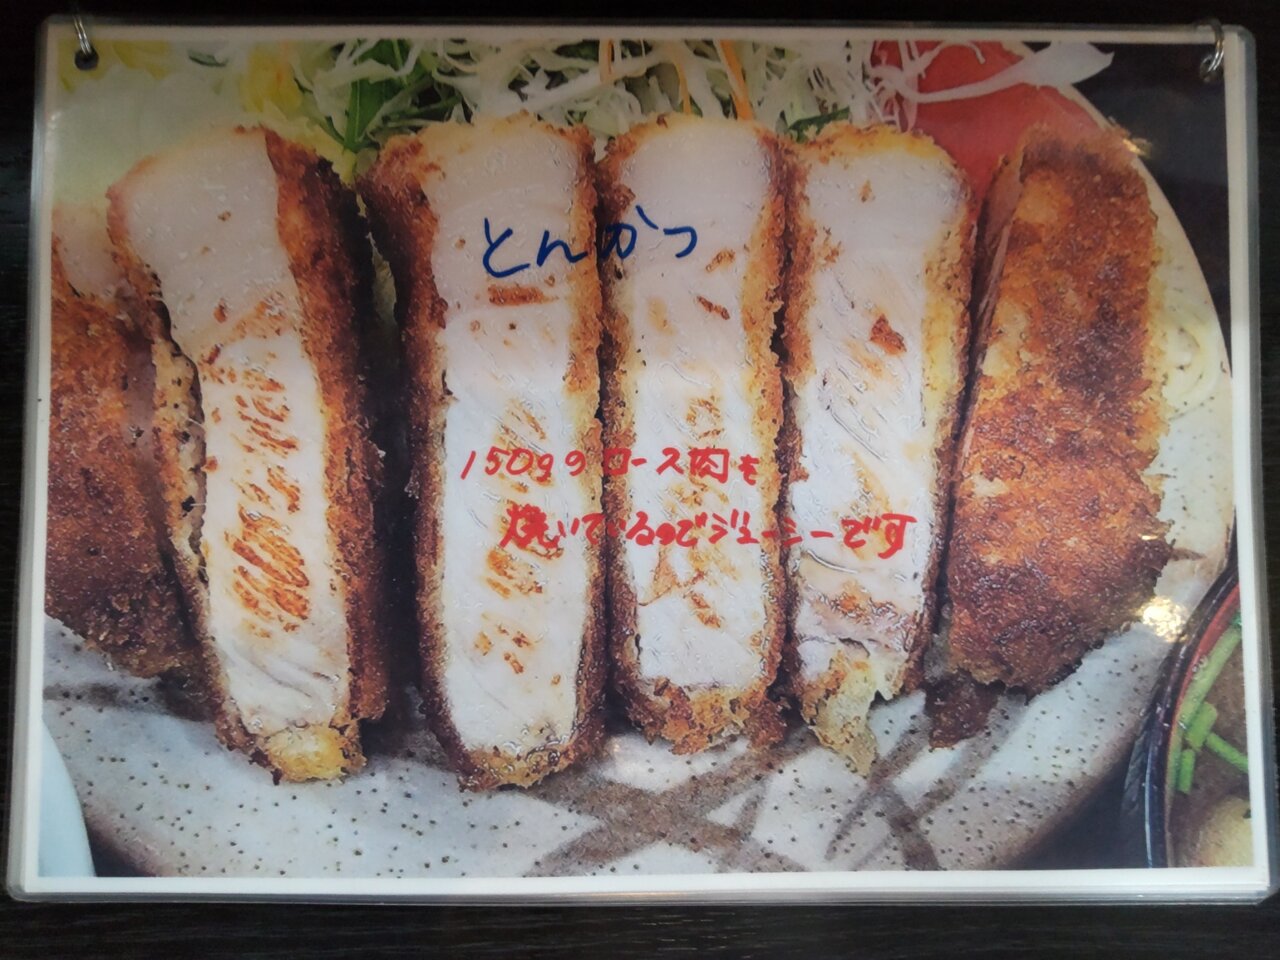 とんかつ
150gのロース肉を
焼いているのでジューシーです